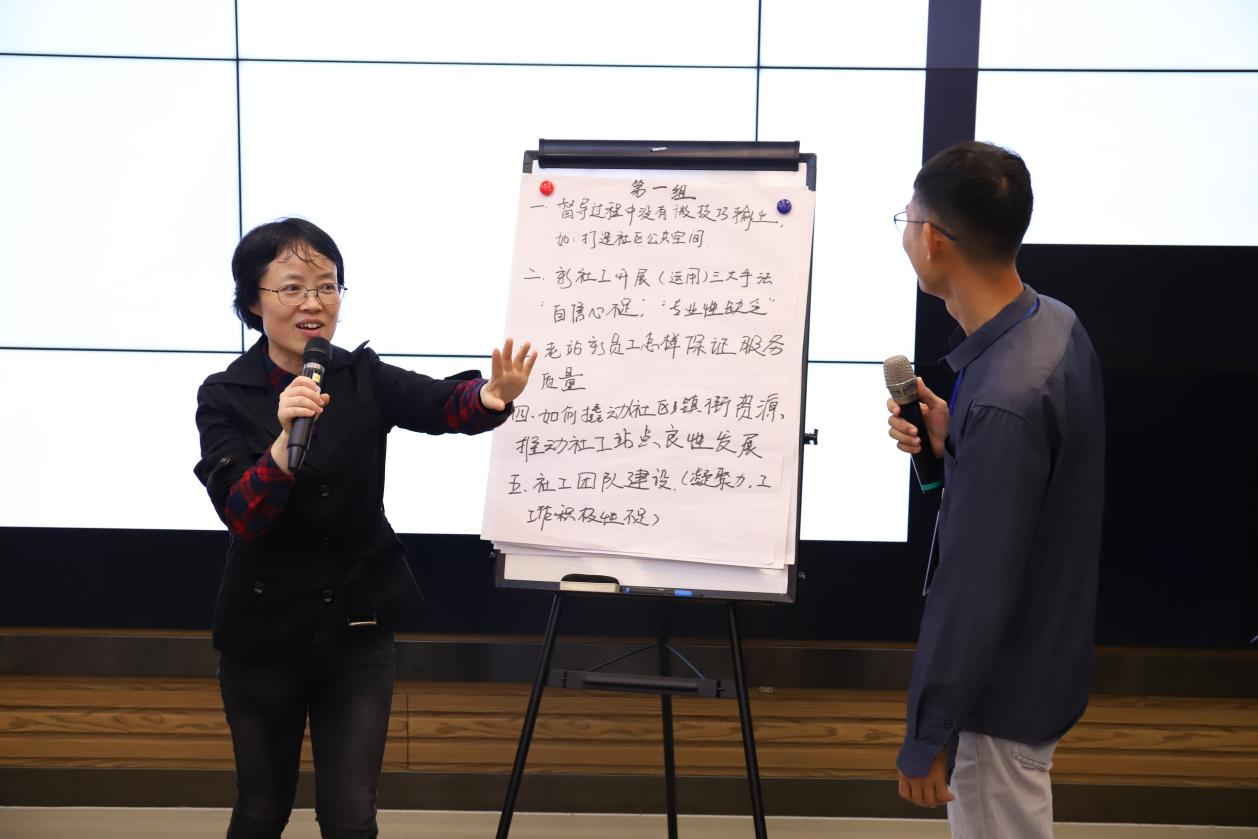 第一组
一、督导过程中没有微技巧输出,
如:打造社区公共空间.
二、新社工开展(运用)三大手法
"自信心不足","专业性缺乏"
老站新员工怎样保证服务
质量
四、如何撬动社区、镇街资源、
推动社工站点良性发展
五、社工团队建设.(凝聚力,工
作积极性不足)